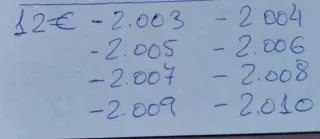 12€ - 2.003 - 2.004
- 2.005 - 2.006
- 2.007 - 2.008
- 2.009 - 2.010